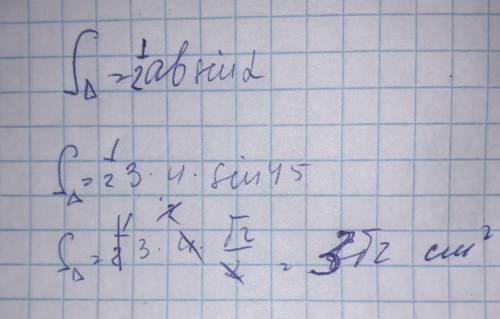 S△ = 1/2 ab sin α
S△ = 1/2 3 · 4 · sin 45
S△ = 1/2 3 · 4 · √2/2 = 3√2 cm²